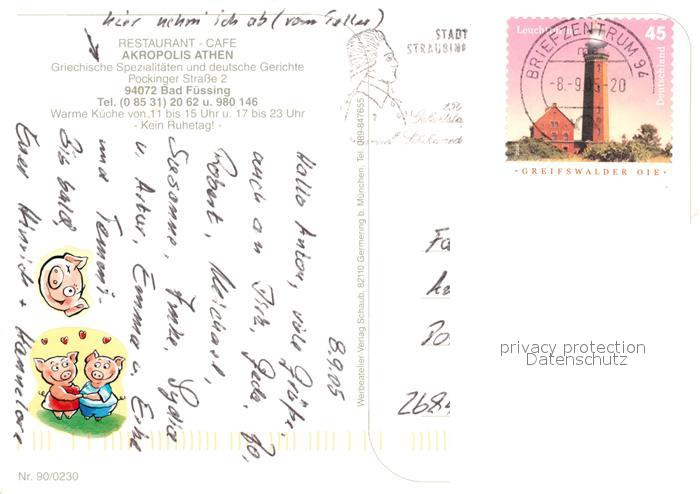 hier nehm ich ab (vom Teller)
RESTAURANT - CAFE
AKROPOLIS ATHEN
Griechische Spezialitäten und deutsche Gerichte
Pockinger Straße 2
94072 Bad Füssing
Tel. (0 85 31) 20 62 u. 980 146
Warme Küche von 11 bis 15 Uhr u. 17 bis 23 Uhr
- Kein Ruhetag! -
8.9.05
Hallo Anton, viele Grüße
auch an Dich,
Robert, Michael,
Susanne, Lydia
u. Artur, Emma u.
und
Bis bald,
Eure Hinrich + Hannelore
Nr. 90/0230
Werbeatelier Verlag Schaub, 82110 Germering b. München, Tel. 089-847655
STADT
STRAUBING
BRIEFZENTRUM 94
-8.-9.05-20
Leuchttürme
45
Deutschland
· GREIFSWALDER OIE ·
Fa
268
privacy protection
Datenschutz